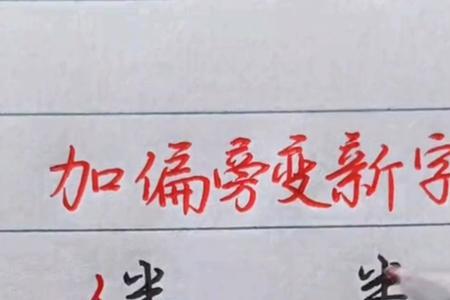 加偏旁变新字